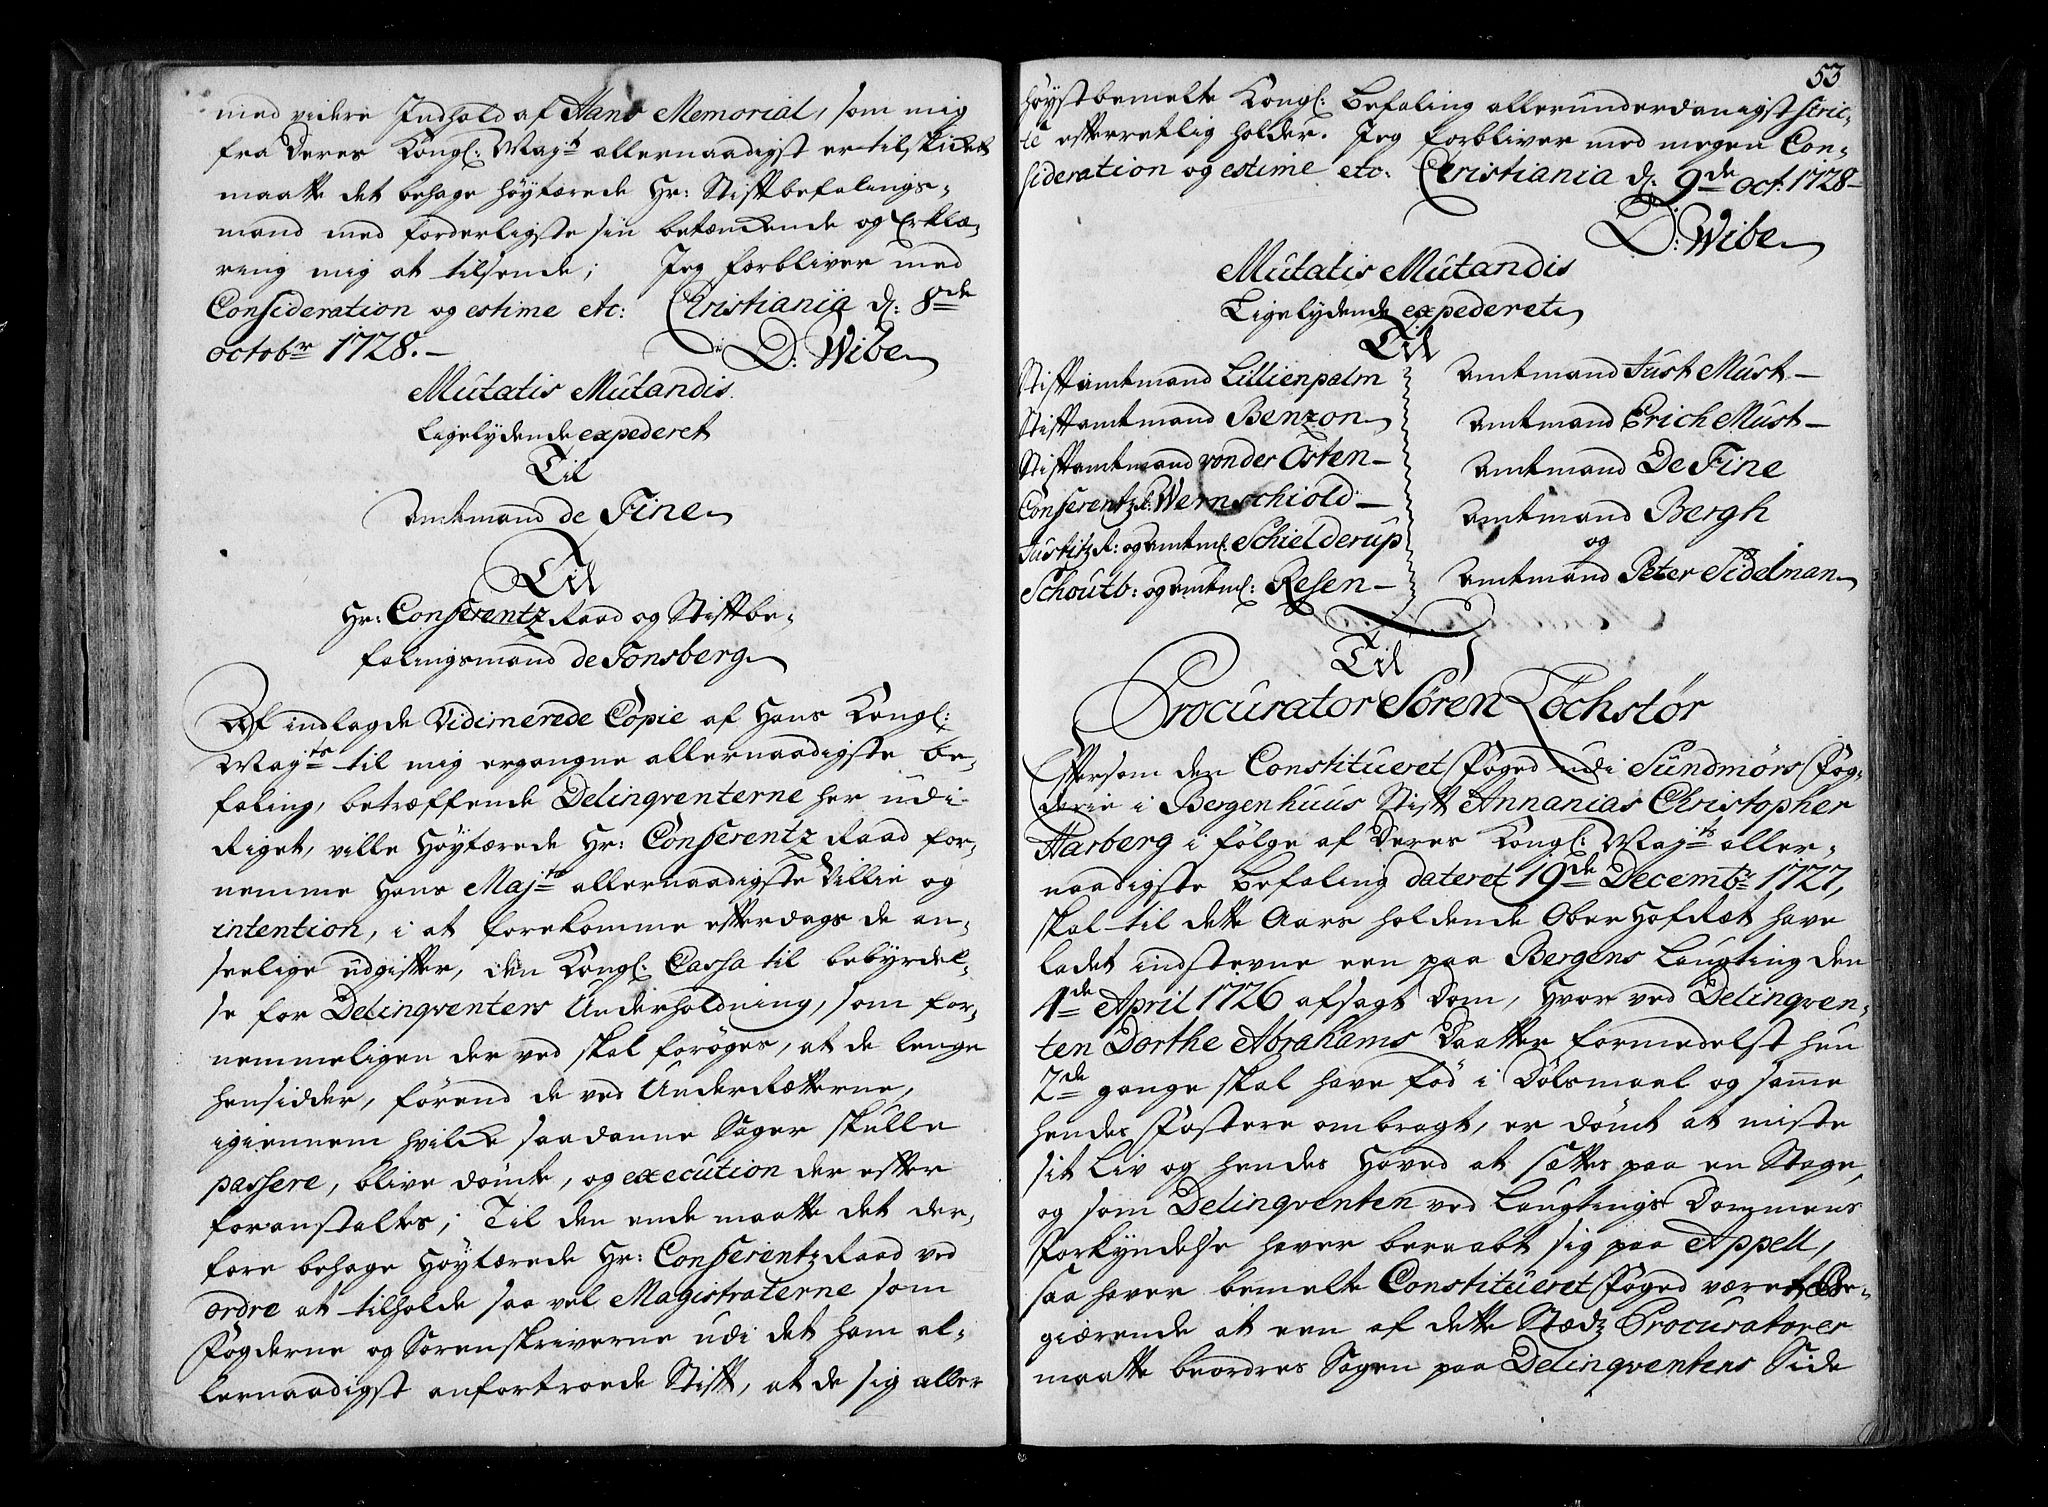 med videre Indhold af Hans Memorial, som mig
fra Deres Kongl: Maj:ts allernaadigst er tilskicket
maatte det behage höytærede Hr: Stiftbefalings-
mand med forderligste sin betænckende og Erklæ-
ring mig at tilsende; Jeg forbliver med
Consideration og estime etc: Christiania d: 8de
octobr 1728.-
D: Wibe
Mutatis Mutandis
Ligelydende expederet
Til
Amtmand de Fine
Til
Hr: Conferentz Raad og Stiftbe-
falingsmand de Tonsberg
Af indlagde Vidimerede Copie af Hans Kongl:
Majts til mig ergangne allernaadigste be-
faling, betræffende Delinqventerne her udi
Riget, ville Höytærede Hr: Conferentz Raad for-
nemme Hans Majts allernaadigste Villie og
intention, i at forekomme efterdags de an-
seelige udgifter, den Kongl: Cassa til bebyrdel-
se for Delinqventers Underholdning, som for-
nemmeligen der ved skal forøges, at de lenge
hensidder, förend de ved UnderRætterne,
igiennem hvilcke saadanne Sager skulle
passere, blive dömte, og execution der efter
foranstaltes; Til den ende maatte det der-
fore behage Höytærede Hr: Conferentz Raad ved
ordre at tilholde saa vel Magistraterne som
Fogderne og Sorenskriverne udi det ham al-
lernaadigst anfortroede Stift, at de sig aller
53
höystbemelte Kongl: Befaling allerunderdanigst stric-
te efterretlig holder. Jeg forbliver med megen Con-
sideration og estime etc: Christiania d: 9de oct: 1728-
D: Wibe
Mutatis Mutandis
Ligelydende expederet
Til
Stiftamtmand Lillienpalm
Stiftamtmand Benzon
Stiftamtmand von der Osten-
Conferentz R: Wernschiold-
Justitz R: og Amtm: Schielderup
Schoutb: og Amtm: Resen-
Amtmand Just Must-
Amtmand Erich Must-
Amtmand De Fine
Amtmand Bergh
og
Amtmand Peter Sidelman
Til
Procurator Sören Löchstör
Eftersom den Constitueret Foged udi Sundmörs Fog-
derie i Bergenhuus Stift Annanias Christopher
Harberg i fölge af Deres Kongl: Majts aller-
naadigste Befaling dateret 19de Decembr 1727,
skal til dette Aars holdende OberHofRæt have
ladet indstevne een paa Bergens Laugting den
4de April 1726 afsagt Dom, Hvor ved Delinqven-
ten Dorthe Abrahams Daatter formedelst hun
2de gange skal have fød i Dölsmaal og samme
hendes Fostere ombragt, er dömt at miste
sit Liv og hendes Hoved at sættes paa en Stage,
og som Delinqventen ved Laugtings Dommens
Forkyndelse haver beraabt sig paa Appell,
saa haver bemelte Constitueret Foged været Be-
giærende at een af dette Stædz Procuratorer
maatte beordres Sagen paa Delinqventens Side